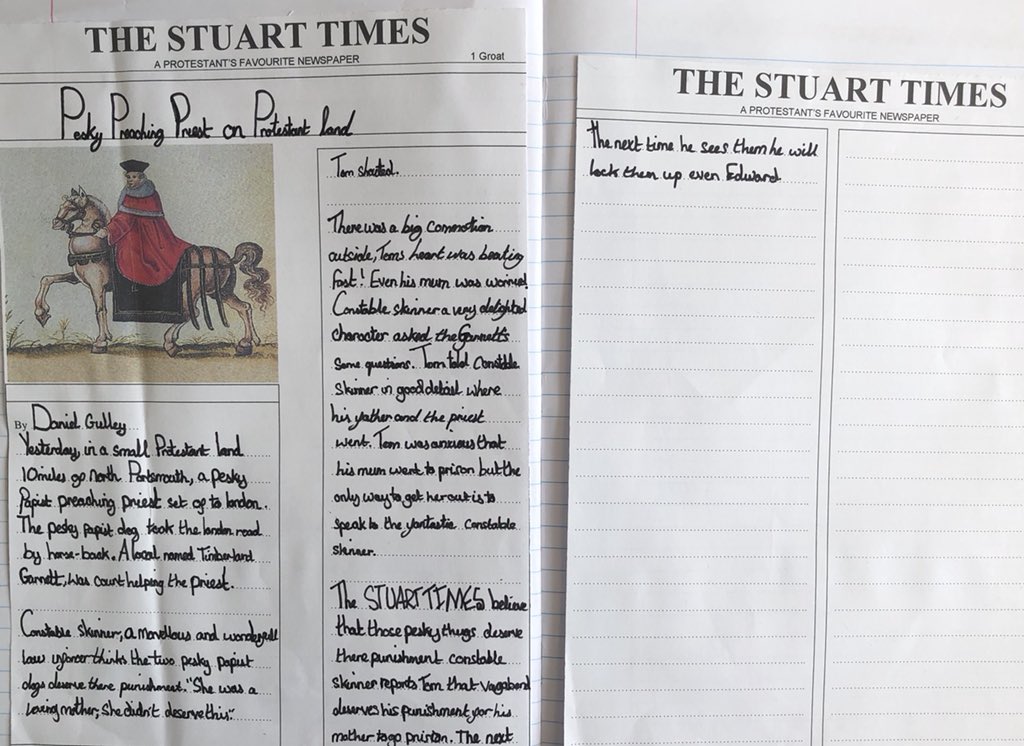 THE STUART TIMES
A PROTESTANT'S FAVOURITE NEWSPAPER
1 Groat
Pesky Preaching Priest on Protestant land
By Daniel Gulley
Yesterday, in a small Protestant land
10 miles of north Portsmouth, a pesky
Papist preaching priest set of to london.
The pesky papist dog took the london road
by horse-back. A local named Timberland
Garnett, was court helping the priest.
Constable Skinner, a marvellous and wonderfull
law inforcer thinks the two pesky papist
dogs deserve there punishment. "She was a
loving mother, She didn't deserve this".
Tom shouted.
There was a big commotion
outside, Toms heart was beating
fast! Even his mum was worried
Constable skinner a very delighted
character asked the Garnett's
some questions. Tom told Constable
Skinner in good detail where
his father and the priest
went. Tom was anxious that
his mum went to prison but the
only way to get her out is to
speak to the fantastic Constable
skinner.
The STUART TIMES believe
that those pesky thugs deserve
there punishment constable
skinner reports Tom that vagabond
deserves his punishment for his
mother to go prison. The next
THE STUART TIMES
A PROTESTANT'S FAVOURITE NEWSPAPER
the next time he sees them he will
lock them up even Edward